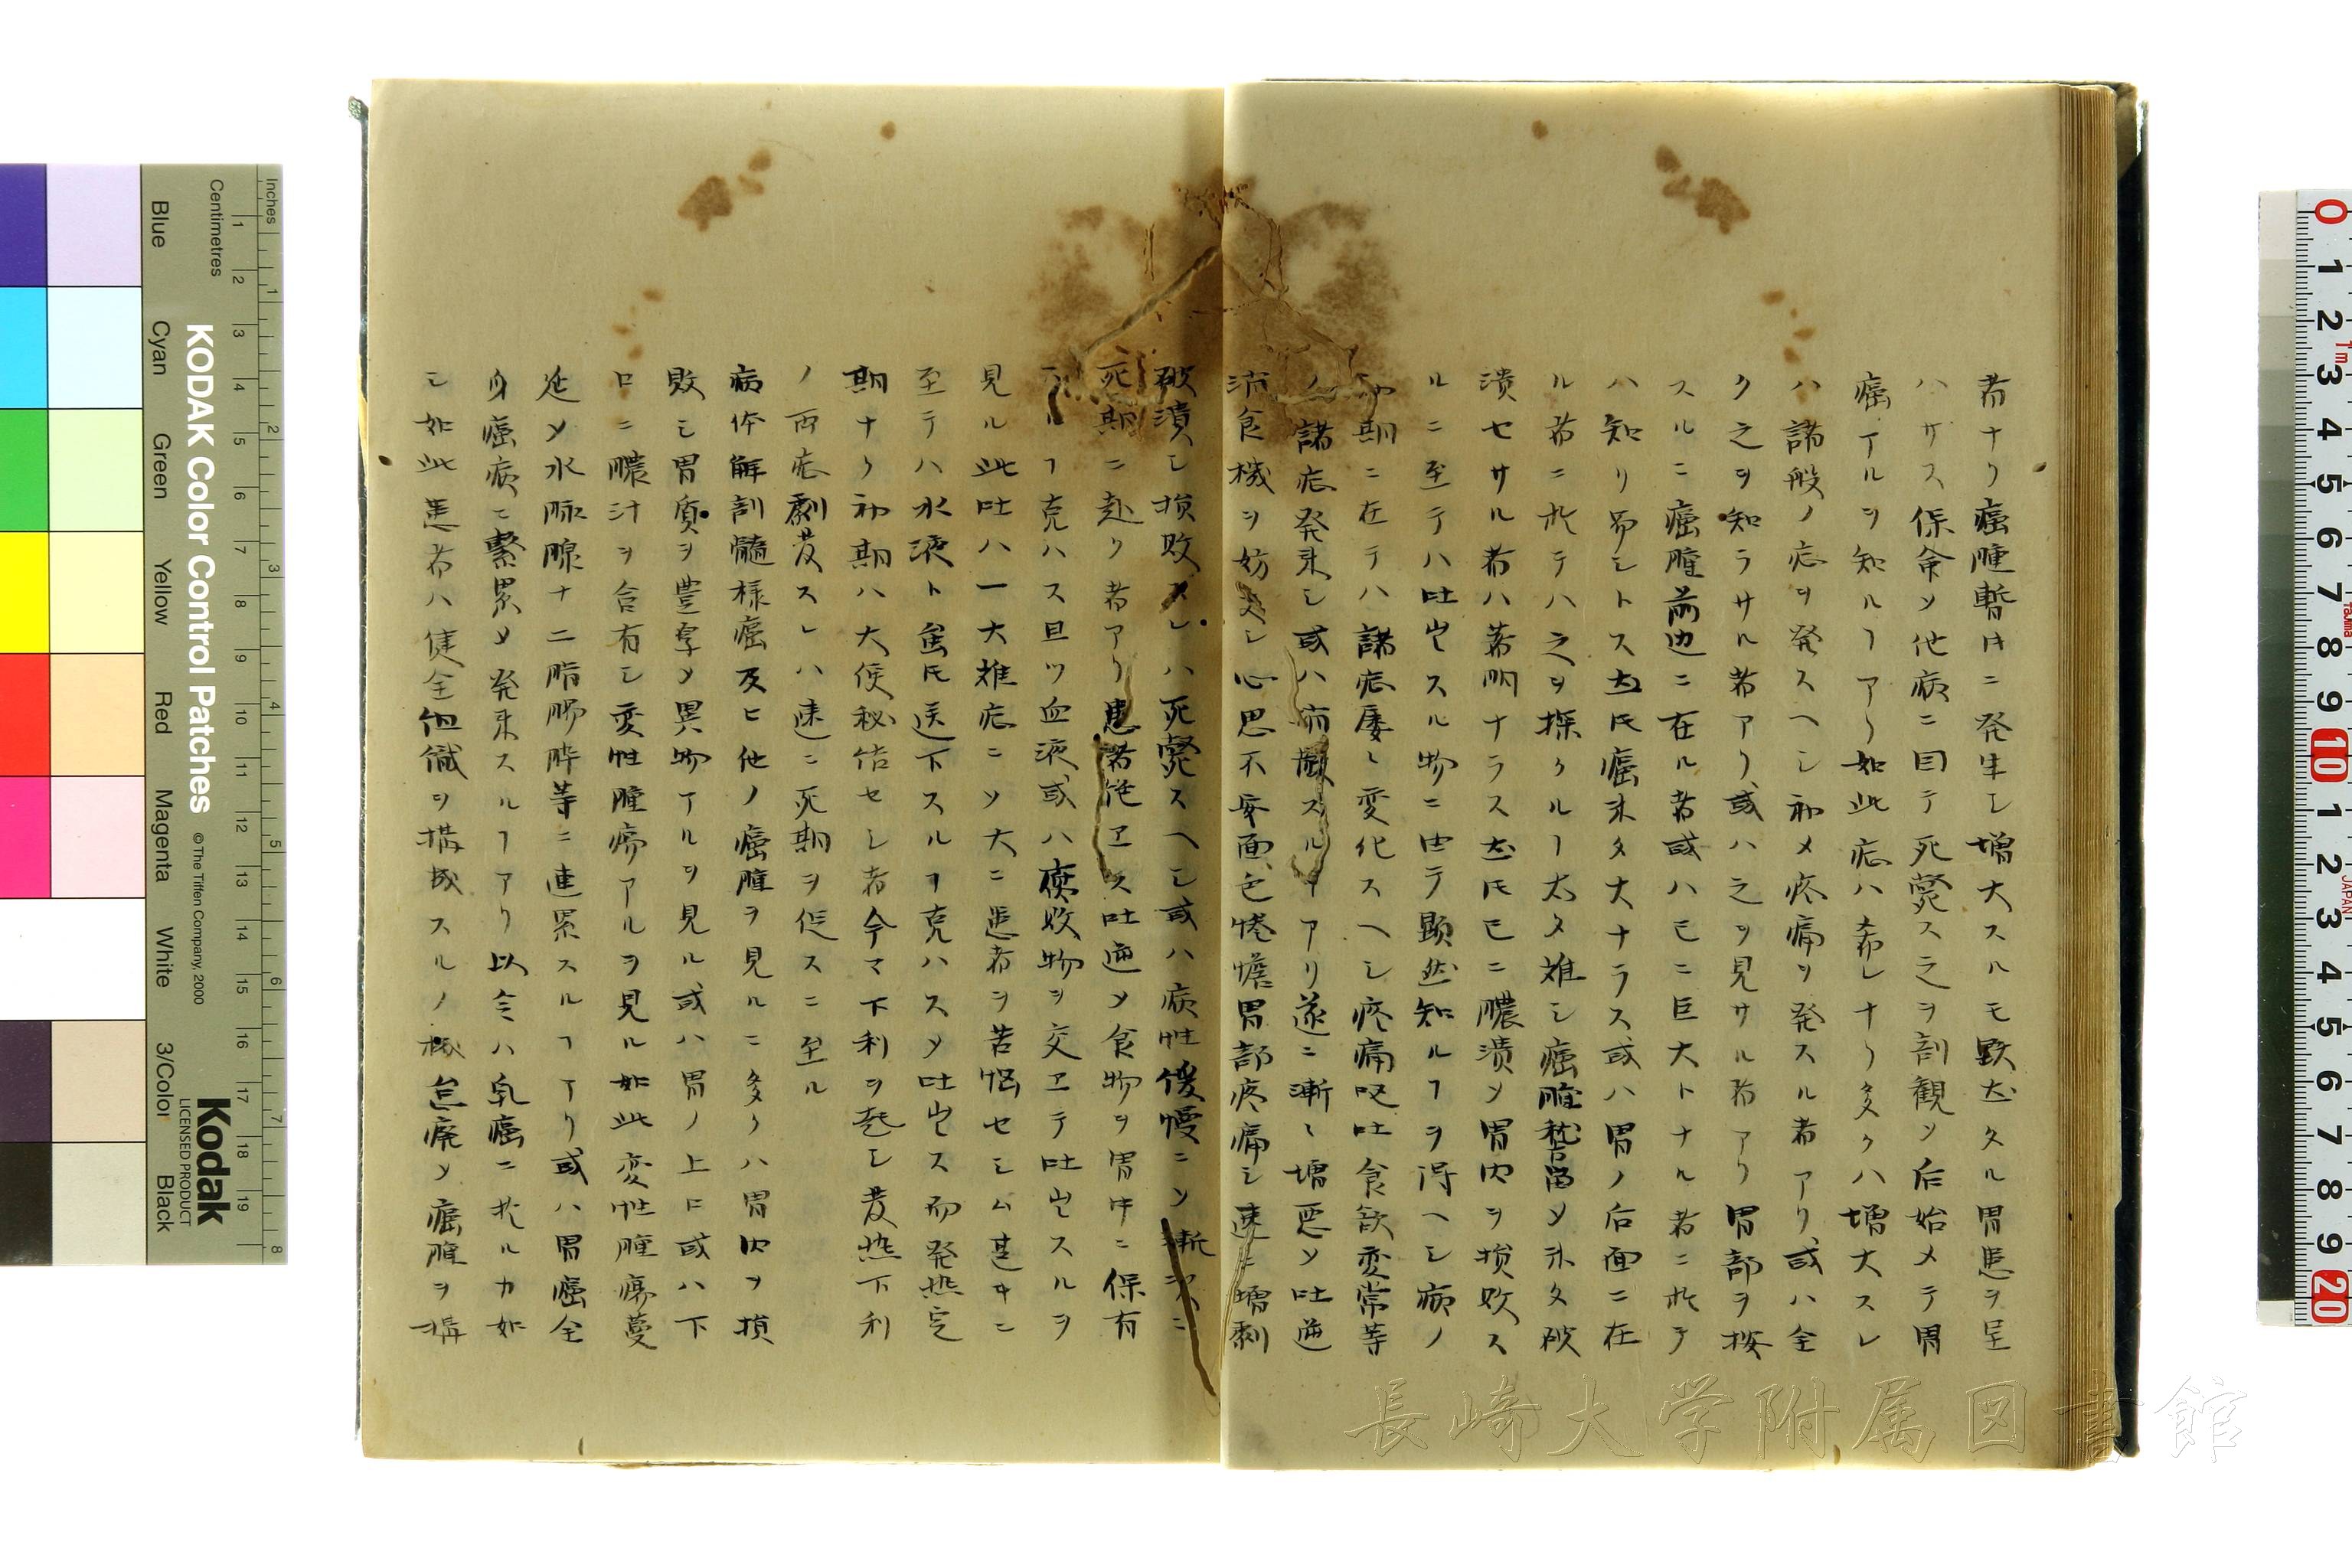 者ナリ癌腫暫時ニ発生シ増大スルモ歇杰タル胃患ヲ呈
ハサス保命〆他病ニ因テ死斃ス之ヲ剖観〆后始メテ胃
癌アルヲ知ルヿアリ如此症ハ希レナリ多クハ増大スレ
ハ諸般ノ症ヲ発スヘシ初メ疼痛ヲ発スル者アリ或ハ全
ク之ヲ知ラサル者アリ或ハ之ヲ見サル者アリ胃部ヲ按
スルニ癌腫前边ニ在ル者或ハ已ニ巨大トナル者ニ於テ
ハ知リ易シトス尨氏癌未タ大ナラス或ハ胃ノ后面ニ在
ル者ニ於テハ之ヲ探クルヿ太タ难シ癌腫稽留〆未タ破
潰セサル者ハ著明ナラス尨氏已ニ膿潰〆胃内ヲ损敗ス
ルニ至テハ吐出スル物ニ由テ顕然知ルヿヲ得ヘシ病ノ
初期ニ在テハ諸症屡々変化スヘシ疼痛呕吐食欲変常等
ノ諸症発来シ或ハ病
スルヿアリ遂ニ漸々増悪〆吐逆
沛食機ヲ妨
シ心思不安面色惓憺胃部疼痛シ速ニ増劇
破潰シ损敗スレハ死斃スヘシ或ハ病性優慢ニ〆漸次ニ
死期ニ赴ク者アリ患者絶ヱス吐逆〆食物ヲ胃中ニ保有
スルヿ克ハス且ツ血液或ハ腐敗物ヲ交ヱテ吐出スルヲ
見ル此吐ハ一大难症ニ〆大ニ患者ヲ苦悩セシム甚キニ
至テハ水液ト虽氏送下スルヿ克ハス〆吐出ス而発热定
期ナク初期ハ大便秘结セシ者今マ下利ヲ起シ发热下利
ノ両症劇发スレハ速ニ死期ヲ促スニ至ル
病体解剖髓様癌及ヒ他ノ癌腫ヲ見ルニ多クハ胃内ヲ损
敗シ胃質ヲ豊厚〆異物アルヲ見ル或ハ胃ノ上口或ハ下
口ニ膿汁ヲ含有シ変性腫瘍アルヲ見ル如此変性腫瘍蔓
延〆水脉腺ナニ脂膓脺等ニ連累スルヿアリ或ハ胃癌全
身癌病ニ繋累〆発来スルヿアリ以令ハ乳癌ニ於ルカ如
シ如此患者ハ健全但織ヲ搆成スルノ機怠廃〆癌腫ヲ搆
長崎大学附属図書館
KODAK Color Control Patches
© The Tiffen Company, 2000
Kodak
LICENSED PRODUCT
Inches
Centimetres
Blue Cyan Green Yellow Red Magenta White 3/Color Black
1 2 3 4 5 6 7 8 9 10 11 12 13 14 15 16 17 18 19
1 2 3 4 5 6 7 8
0 1 2 3 4 5 6 7 8 9 10 1 2 3 4 5 6 7 8 9 20
JAPAN